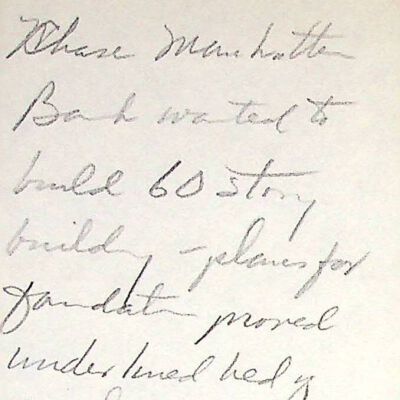 Chase Manhatten
Bank wanted to
build 60 story
building - plans for
foundation proved
under lined bed of